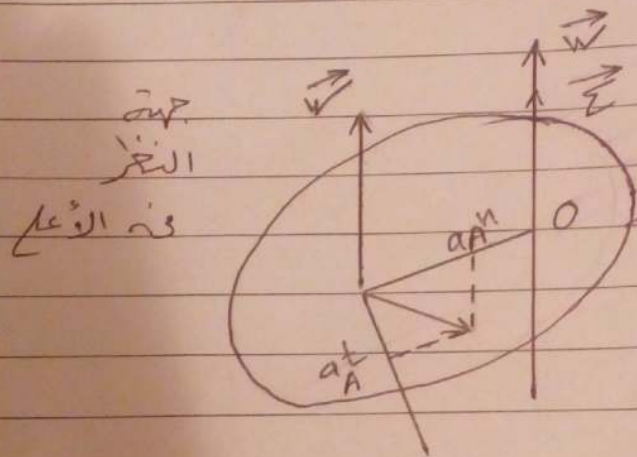 جهة
النظر
من الأعلى
w
w
ε
O
aAn
atA